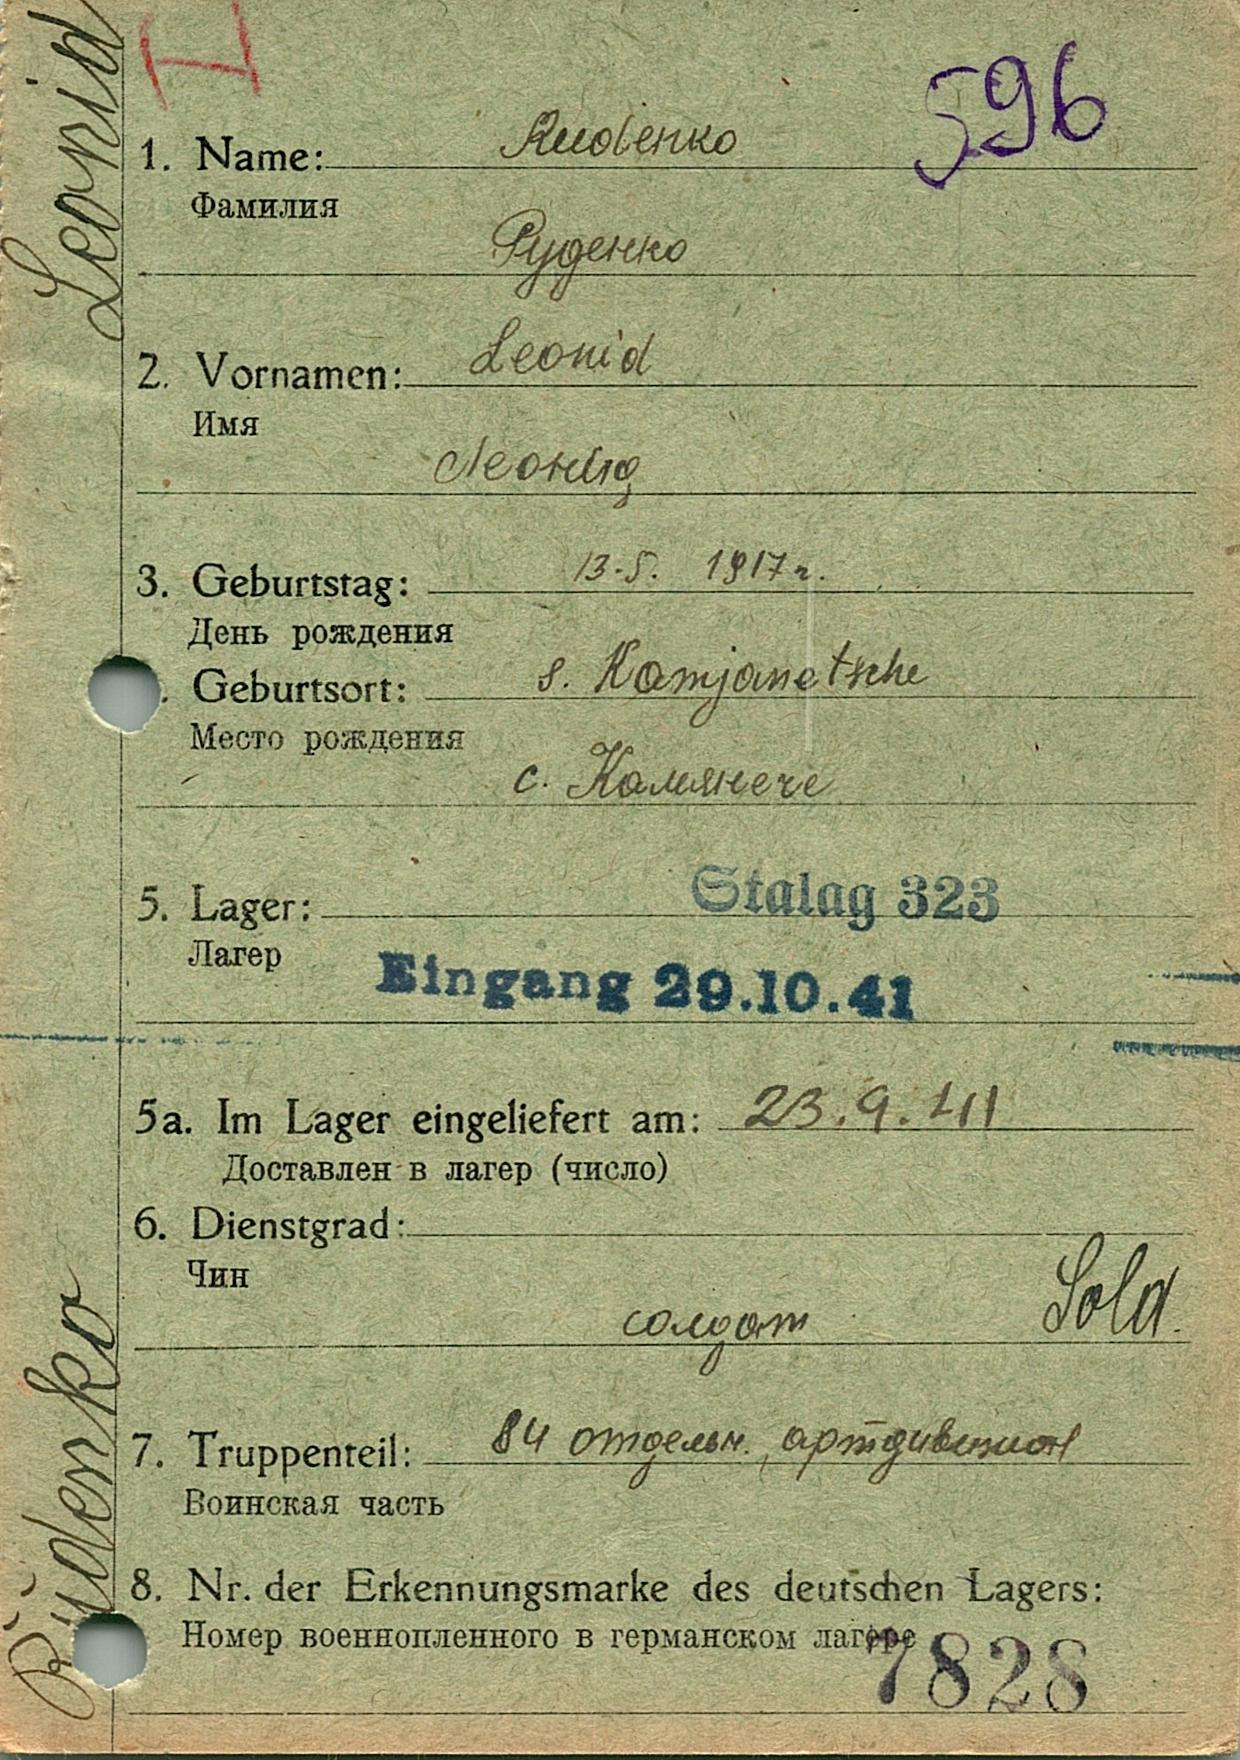 Leonid
596
1. Name: Rudenko
Фамилия
Руденко
2. Vornamen: Leonid
Имя
Леонид
3. Geburtstag: 13.5. 1917 г.
День рождения
. Geburtsort: s. Kamjanetsche
Место рождения
с. Камянече
5. Lager: Stalag 323
Лагер
Eingang 29.10.41
5a. Im Lager eingeliefert am: 23.9.41
Доставлен в лагер (число)
6. Dienstgrad:
Чин
солдат Sold.
7. Truppenteil: 84 отдельн. артдивизион
Воинская часть
8. Nr. der Erkennungsmarke des deutschen Lagers:
Номер военнопленного в германском лагере
7828
Rudenko